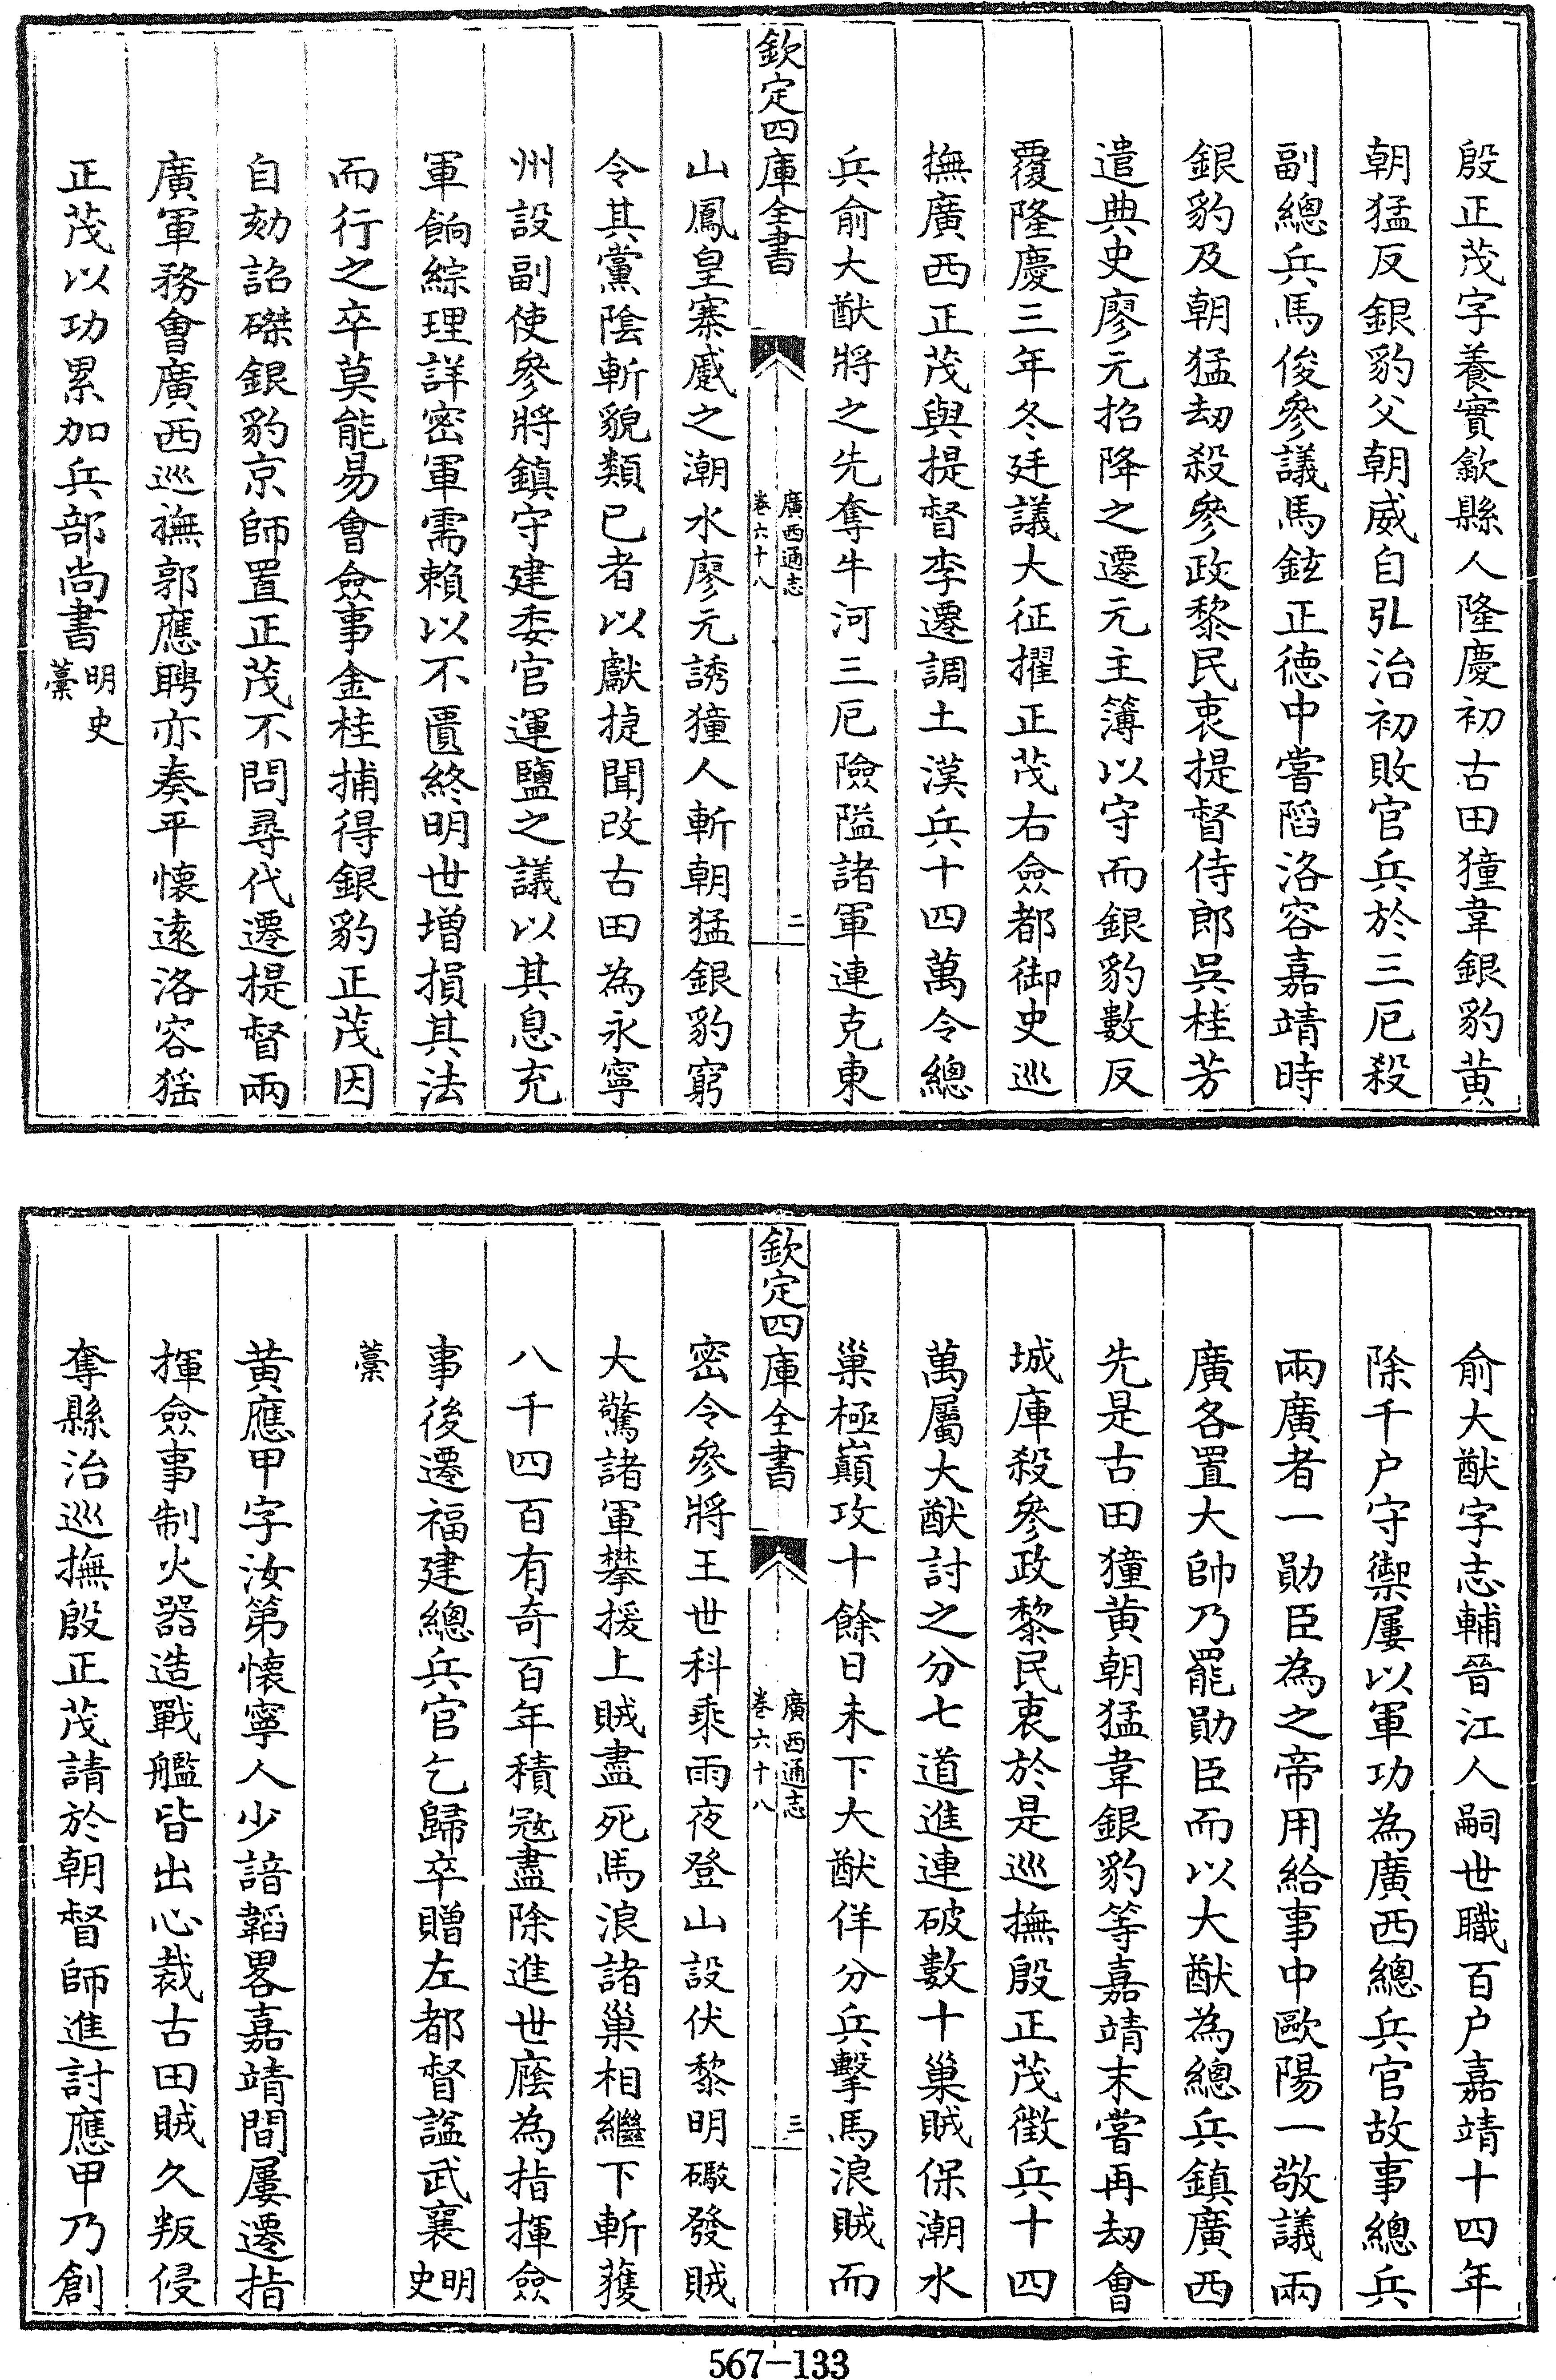 殷正茂字養實歙縣人隆慶初古田獞韋銀豹黄
朝猛反銀豹父朝威自弘治初敗官兵於三厄殺
副總兵馬俊參議馬鉉正德中嘗陷洛容嘉靖時
銀豹及朝猛刼殺參政黎民衷提督侍郎吳桂芳
遣典史廖元招降之遷元主簿以守而銀豹數反
覆隆慶三年冬廷議大征擢正茂右僉都御史巡
撫廣西正茂與提督李遷調土漢兵十四萬令總
兵俞大猷將之先奪牛河三厄險隘諸軍連克東
欽定四庫全書
廣西通志
卷六十八
二
山鳳皇寨蹙之潮水廖元誘獞人斬朝猛銀豹窮
令其黨陰斬貌類已者以獻捷聞改古田為永寧
州設副使參將鎮守建委官運鹽之議以其息充
軍餉綜理詳密軍需賴以不匱終明世增損其法
而行之卒莫能易會僉事金桂捕得銀豹正茂因
自劾詔磔銀豹京師置正茂不問尋代遷提督兩
廣軍務會廣西巡撫郭應聘亦奏平懷遠洛容猺
正茂以功累加兵部尚書明史藳
俞大猷字志輔晉江人嗣世職百户嘉靖十四年
除千户守禦屢以軍功為廣西總兵官故事總兵
兩廣者一勛臣為之帝用給事中歐陽一敬議兩
廣各置大帥乃罷勛臣而以大猷為總兵鎮廣西
先是古田獞黄朝猛韋銀豹等嘉靖末嘗再刼會
城庫殺參政黎民衷於是巡撫殷正茂徵兵十四
萬屬大猷討之分七道進連破數十巢賊保潮水
巢極巔攻十餘日未下大猷佯分兵擊馬浪賊而
欽定四庫全書
廣西通志
卷六十八
三
密令參將王世科乘雨夜登山設伏黎明礮發賊
大驚諸軍攀援上賊盡死馬浪諸巢相繼下斬獲
八千四百有奇百年積寇盡除進世廕為指揮僉
事後遷福建總兵官乞歸卒贈左都督諡武襄明史
藳
黄應甲字汝第懷寧人少諳韜畧嘉靖間屢遷指
揮僉事制火器造戰艦皆出心裁古田賊久叛侵
奪縣治巡撫殷正茂請於朝督師進討應甲乃創
567-133